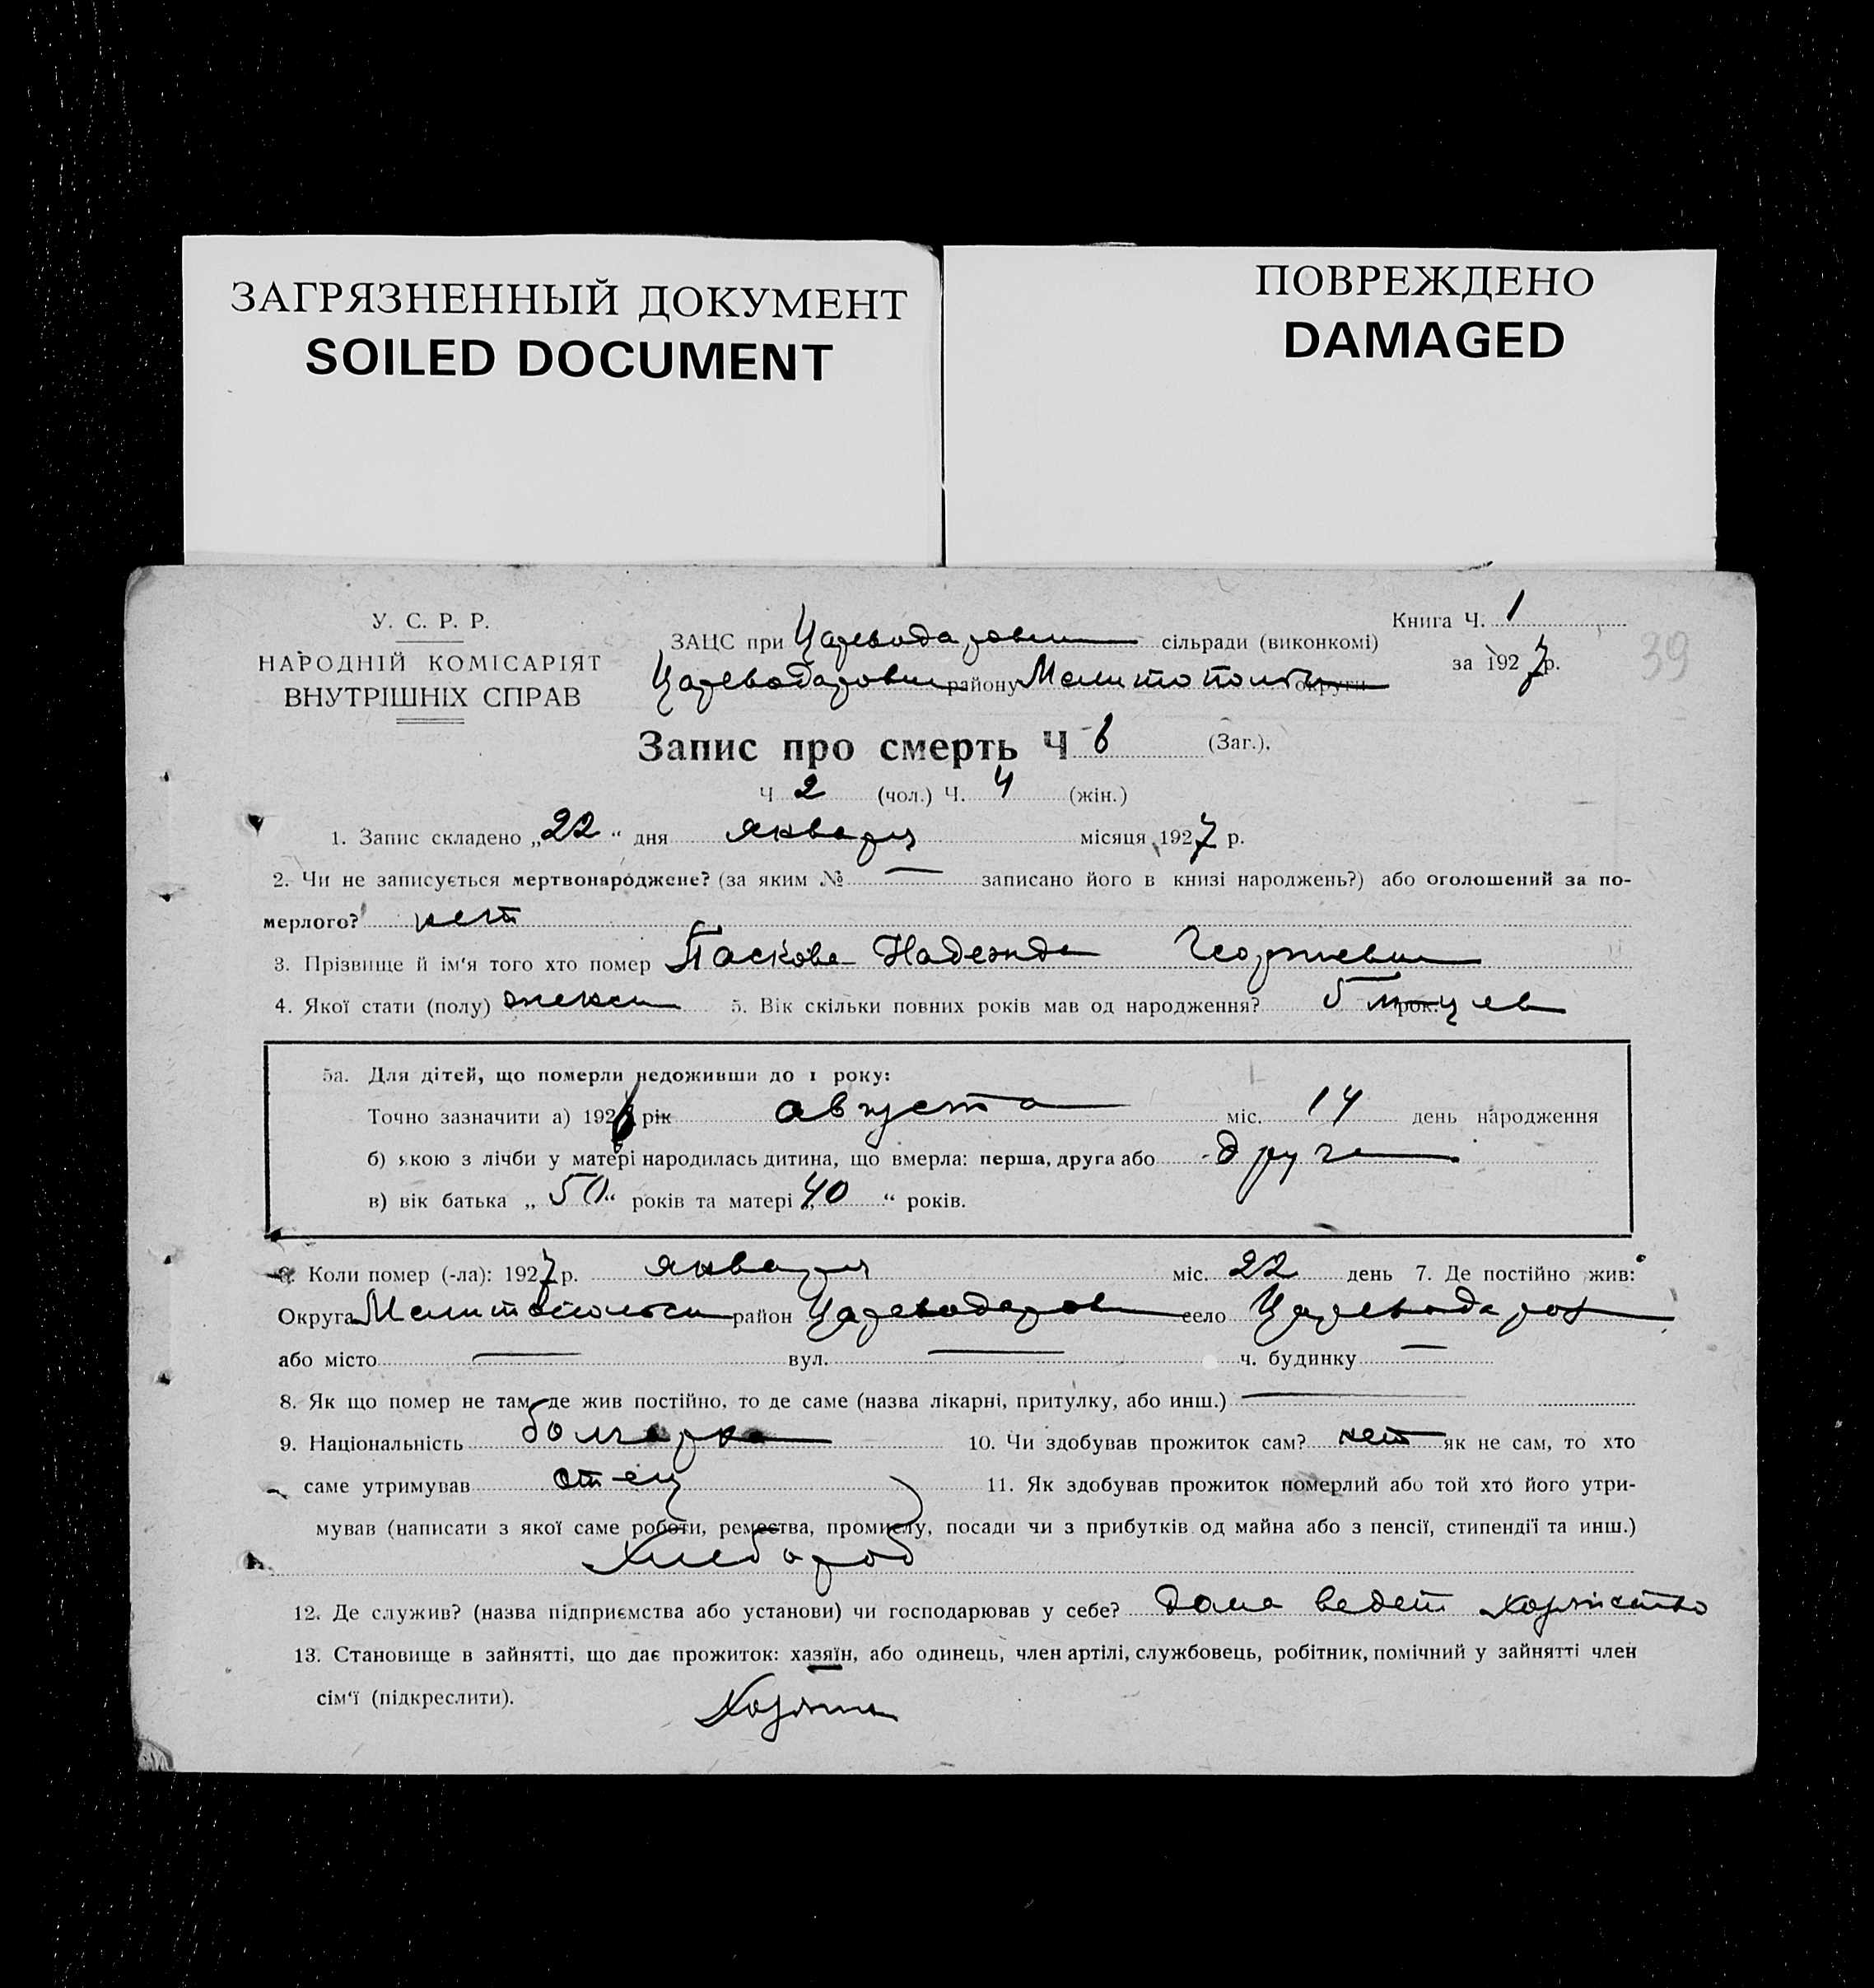 ЗАГРЯЗНЕННЫЙ ДОКУМЕНТ
SOILED DOCUMENT
ПОВРЕЖДЕНО
DAMAGED
У. С. Р. Р.
НАРОДНІЙ КОМІСАРІЯТ
ВНУТРІШНІХ СПРАВ
ЗАЦС при Цареводаровск сільради (виконкомі)
Цареводаровск району Мелитопольск округи
Книга Ч. 1
за 1927 р.
39
Запис про смерть Ч 6 (Заг.),
Ч 2 (чол.) Ч. 4 (жін.)
1. Запис складено „22“ дня января місяця 1927 р.
2. Чи не записується мертвонароджене? (за яким № — записано його в книзі народжень?) або оголошений за по-
мерлого? нет
3. Прізвище й ім'я того хто помер Паскова Надежда Георгиевна
4. Якої стати (полу) женск 5. Вік скільки повних років мав од народження? 5 месяцев рок.
5а. Для дітей, що померли недоживши до 1 року:
Точно зазначити а) 1926 рік августа міс. 14 день народження
б) якою з лічби у матері народилась дитина, що вмерла: перша, друга або друга
в) вік батька „50“ років та матері „40“ років.
6. Коли помер (-ла): 1927 р. января міс. 22 день 7. Де постійно жив:
Округа Мелитопольск район Цареводаров село Цареводаров
або місто — вул. — ч. будинку —
8. Як що помер не там, де жив постійно, то де саме (назва лікарні, притулку, або инш.) —
9. Національність болгарка 10. Чи здобував прожиток сам? нет як не сам, то хто
саме утримував отец 11. Як здобував прожиток померлий або той хто його утри-
мував (написати з якої саме роботи, ремества, промислу, посади чи з прибутків од майна або з пенсії, стипендії та инш.)
Хлебороб
12. Де служив? (назва підприємства або установи) чи господарював у себе? дома ведет
13. Становище в зайнятті, що дає прожиток: хазяїн, або одинець, член артілі, службовець, робітник, помічний у зайнятті член
сім'ї (підкреслити).
Хозяин